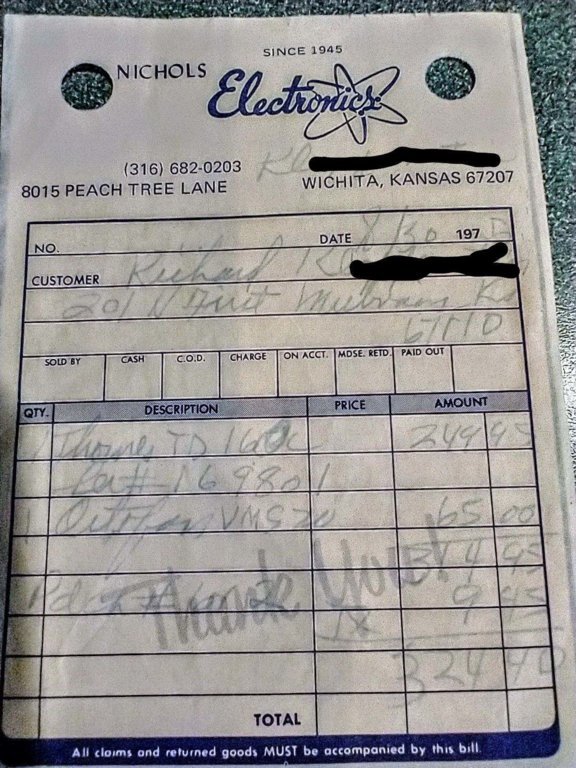 SINCE 1945
NICHOLS
Electronics
(316) 682-0203
8015 PEACH TREE LANE
WICHITA, KANSAS 67207
NO.
DATE /30 197
CUSTOMER Richard
201 N First Mulvane Ks
67110
SOLD BY CASH C.O.D. CHARGE ON ACCT. MDSE. RETD. PAID OUT
QTY. DESCRIPTION PRICE AMOUNT
1 Thorens TD 160C 249 95
69801
1 Ortofon VMS 20 65 00
314 95
Thank You!
TX 9 45
324 40
TOTAL
All claims and returned goods MUST be accompanied by this bill.